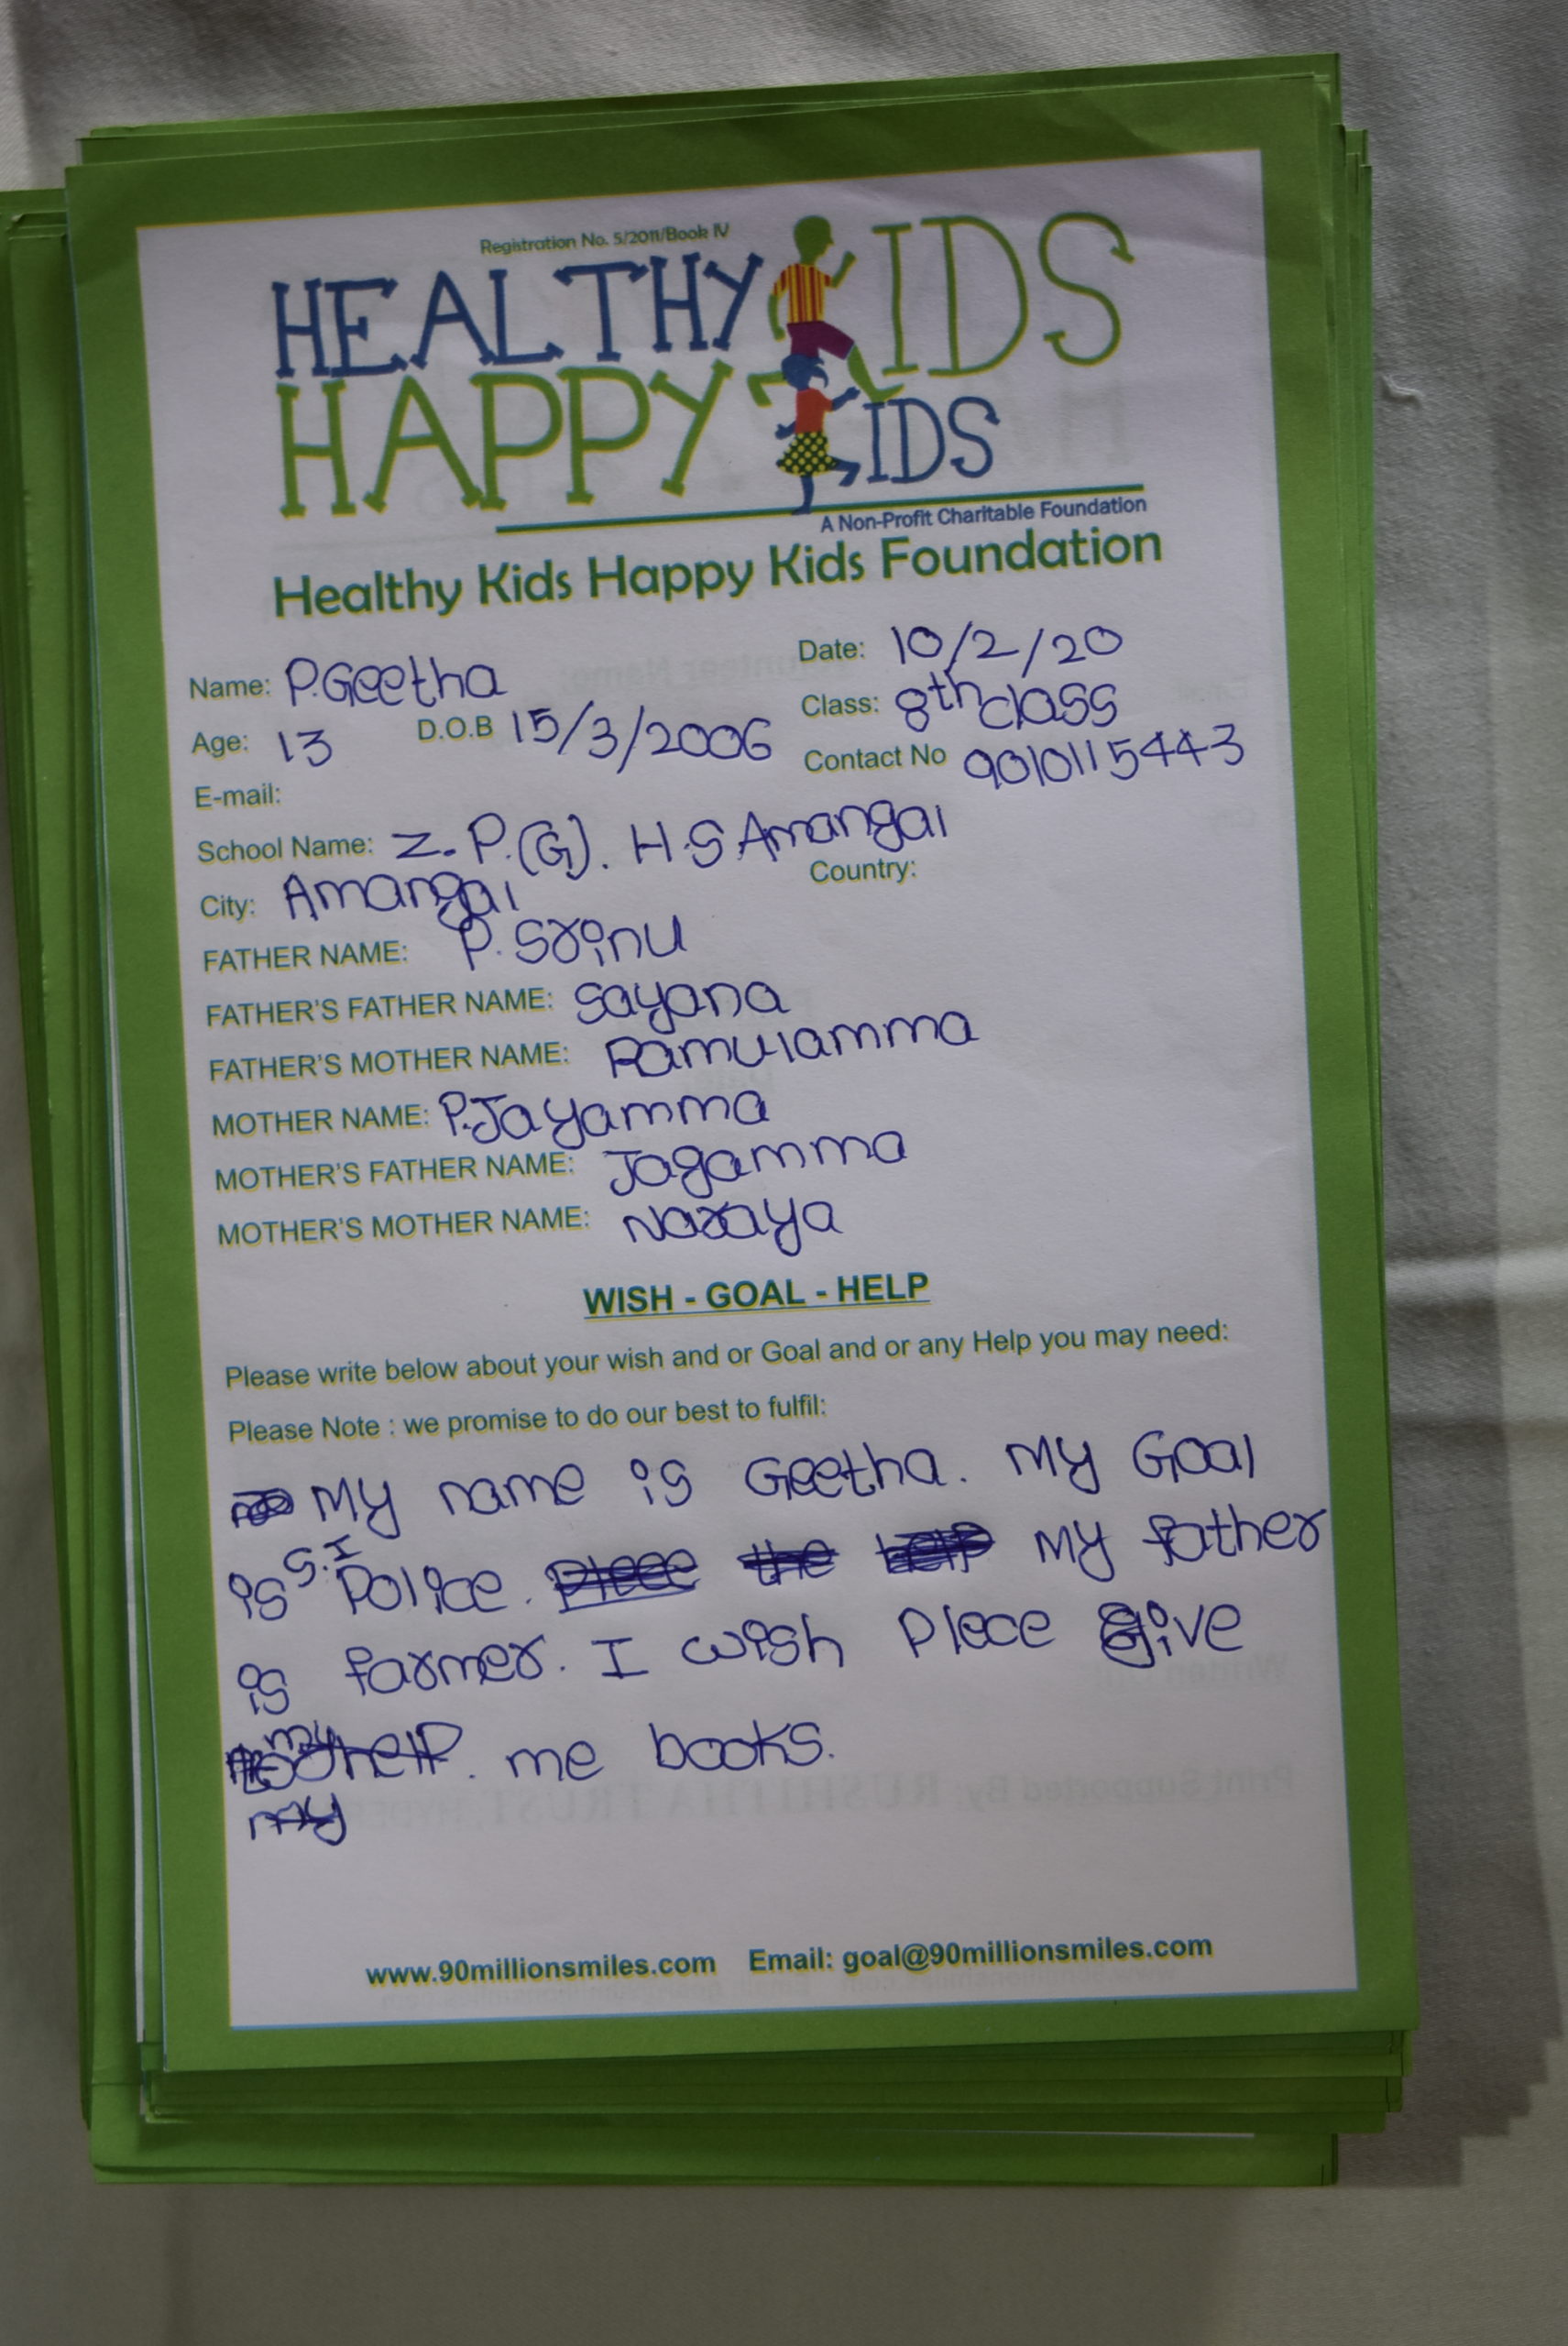 Registration No. 5/2011/Book IV
HEALTHY KIDS
HAPPY KIDS
A Non-Profit Charitable Foundation
Healthy Kids Happy Kids Foundation
Name: P.Geetha Date: 10/2/20
Age: 13 D.O.B 15/3/2006 Class: 8th class
E-mail: Contact No 9010115443
School Name: Z.P.(G). H.S Amangal
City: Amangal Country:
FATHER NAME: P. Srinu
FATHER'S FATHER NAME: Sayana
FATHER'S MOTHER NAME: Ramulamma
MOTHER NAME: P.Jayamma
MOTHER'S FATHER NAME: Jagamma
MOTHER'S MOTHER NAME: Naraya
WISH - GOAL - HELP
Please write below about your wish and or Goal and or any Help you may need:
Please Note : we promise to do our best to fulfil:
My name is Geetha. My Goal
is S.I Police. Plece the help My father
is farmer. I wish Plece Give
my help. me books.
my
www.90millionsmiles.com Email: goal@90millionsmiles.com